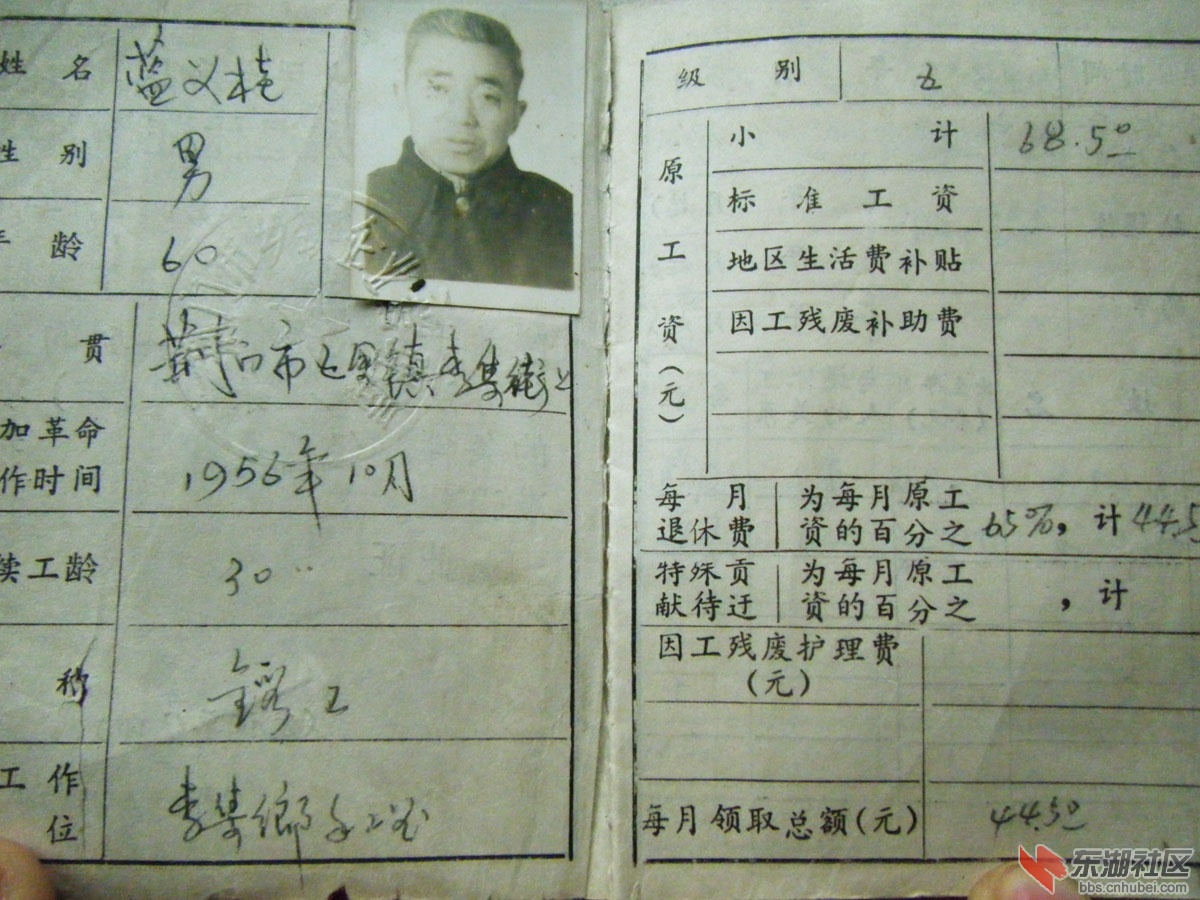 姓 名 蓝义桂
性 别 男
年 龄 60
贯 荆门市五里镇李集街上
加革命
作时间 1956年10月
续工龄 30
称 工
工 作
位 李集乡手工业
级 别 五
原工资(元)
小 计 68.50
标 准 工 资
地区生活费补贴
因工残废补助费
每 月 为每月原工
退休费 资的百分之 65%, 计 44.5
特殊贡 为每月原工
献待迂 资的百分之 , 计
因工残废护理费
(元)
每月领取总额(元) 44.50
东湖社区
bbs.cnhubei.com